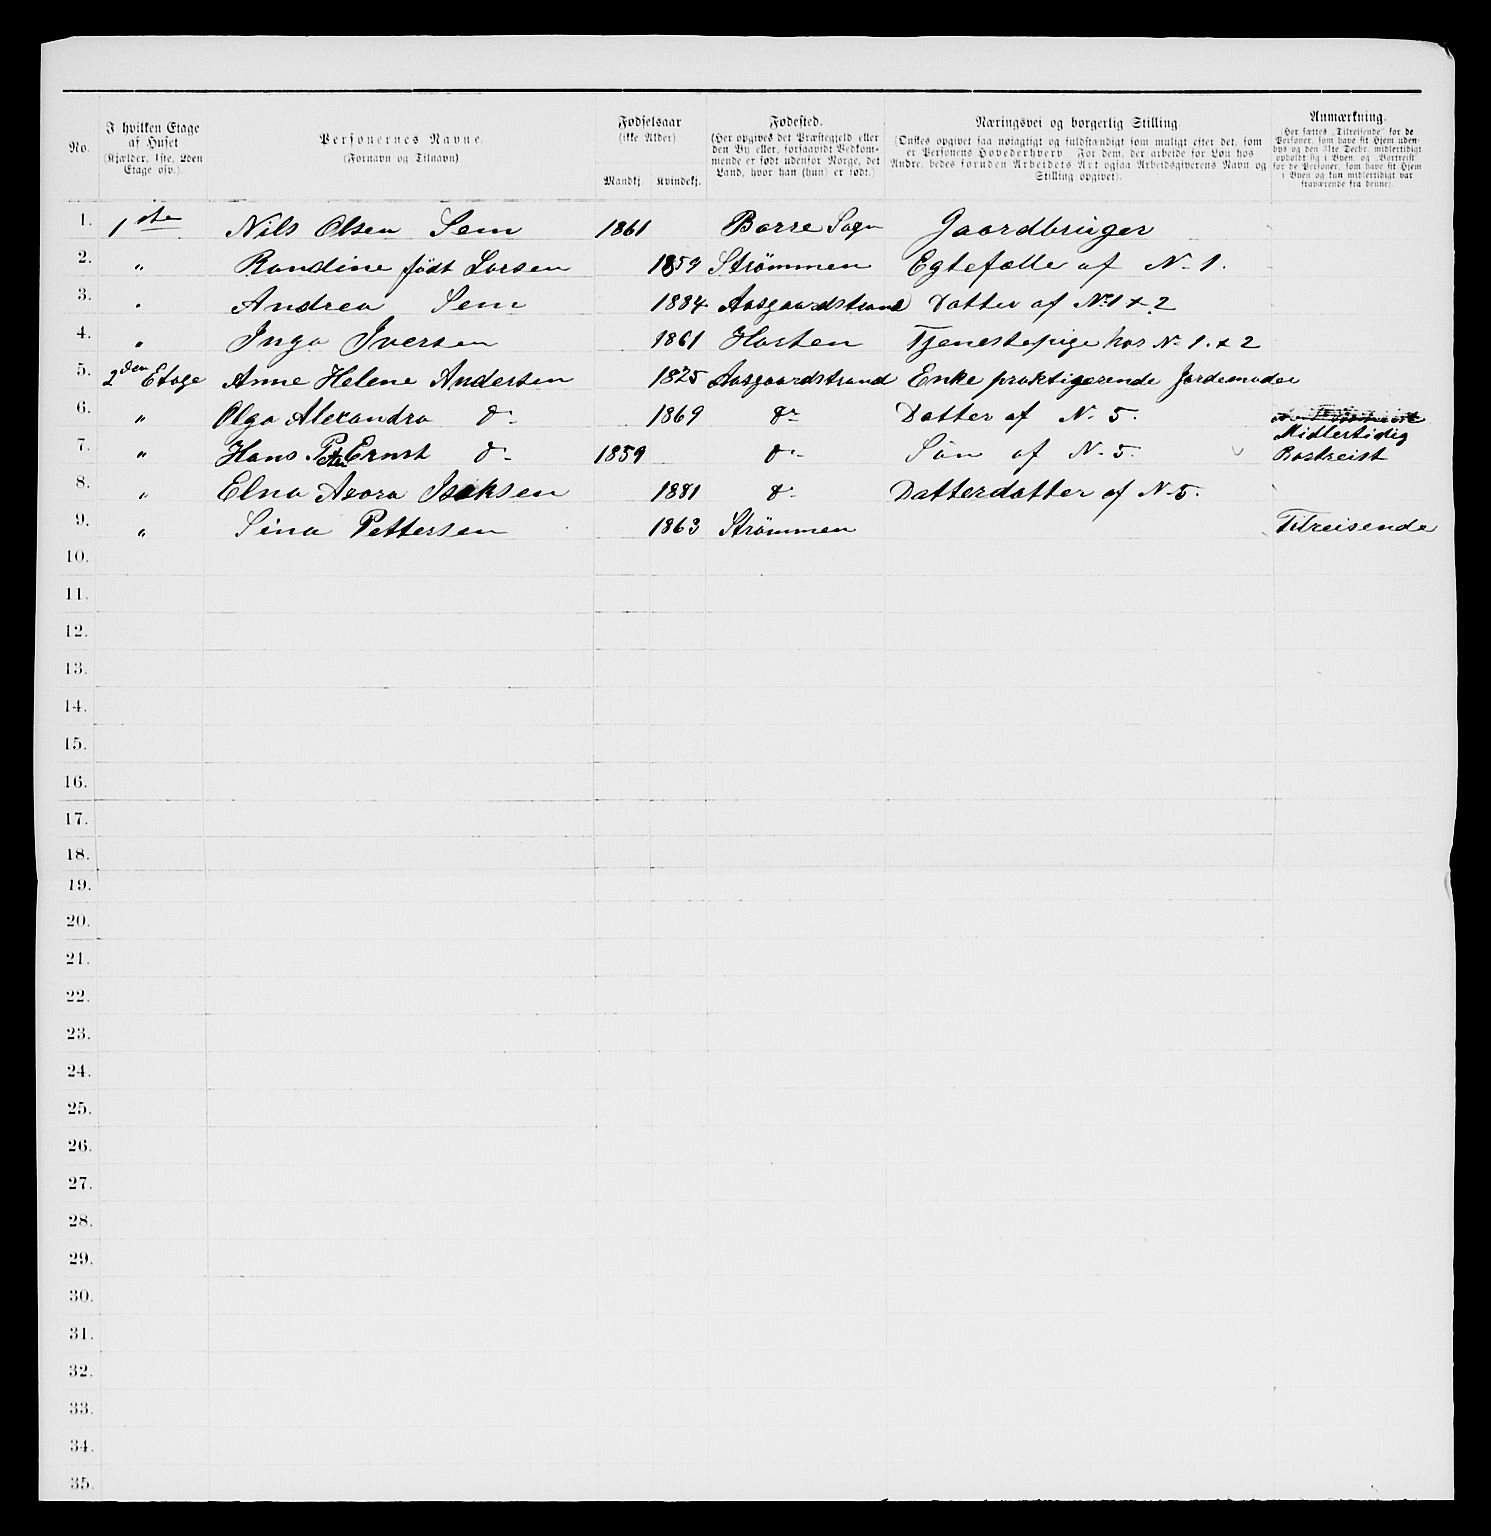 No.
I hvilken Etage
af Huset
(Kjælder, 1ste, 2den
Etage osv.).
Personernes Navne.
(Fornavn og Tilnavn)
Fødselsaar
(ikke Alder)
Mandkj. Kvindekj.
Fødested.
(Her opgives det Præstegjeld eller
den By eller, forsaavidt Vedkom-
mende er født udenfor Norge, det
Land, hvor han (hun) er født.)
Næringsvei og borgerlig Stilling.
(Ønskes opgivet saa nøiagtigt og fuldstændigt som muligt efter det, som
er Personens Hovederhverv. For dem, der arbeide for Løn hos
Andre, bedes foruden Arbeidets Art ogsaa Arbeidsgiverens Navn og
Stilling opgivet).
Anmærkning.
Her sættes „Tilreisende" for de
Personer, som have sit Hjem uden-
bys og den 31te Decbr. midlertidigt
opholdt sig i Byen, og „Bortreist"
for de Personer, som have sit Hjem
i Byen og kun midlertidigt var
fraværende fra denne).
1. 1ste Nils Olsen Sem 1861 Borre Sogn Gaardbruger
2. " Randine født Larsen 1859 Strømmen Egtefælle af N. 1.
3. " Andrea Sem 1884 Aasgaardstrand Datter af No 1 & 2
4. " Inga Iversen 1861 Horten Tjenestepige hos N. 1. & 2
5. 2den Etage Anne Helene Andersen 1825 Aasgaardstrand Enke praktigerende Jordemoder
6. " Olga Alexandra do 1869 do Datter af N. 5.
7. " Hans Peter Ernst do 1859 do Søn af N. 5. Midlertidig
Bortreist
8. " Elna Avora Isaksen 1881 do Datterdatter af N. 5.
9. " Sina Pettersen 1863 Strømmen Tilreisende
10.
11.
12.
13.
14.
15.
16.
17.
18.
19.
20.
21.
22.
23.
24.
25.
26.
27.
28.
29.
30.
31.
32.
33.
34.
35.